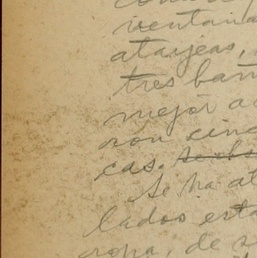 ventana
atarjeas,
tres bañ
mejor a
son cinc
cas.
Se ha at
lados esta
ropa, de